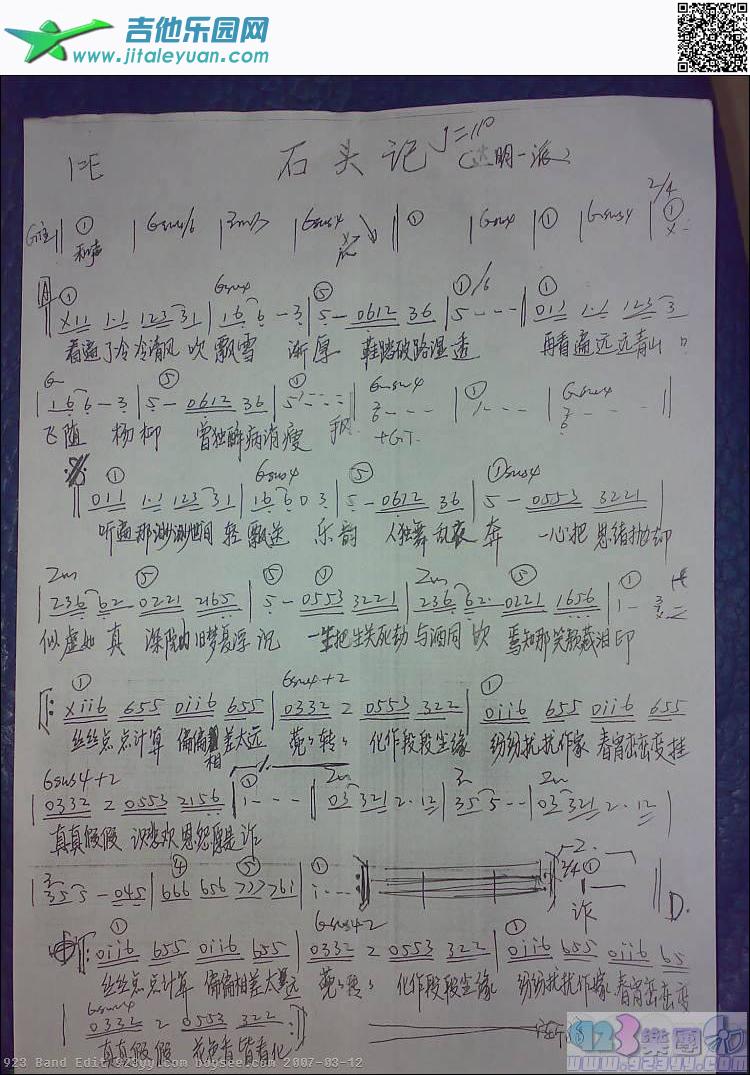 吉他乐园网
www.jitaleyuan.com
1=E 石头记 J=110
(达明一派)
2/4
① Gsus4/6 Gsus4 ① Gsus4 ① Gsus4 ①
和声
A ① Gsus4 ⑤ ①/6 ①
x11 1·1 123 31 | 166 -3 | 5 - 0612 36 | 5 - - - | 011 1·1 123 3
看遍了冷冷清风 吹 飘雪 渐厚 鞋踏破路湿透 再看遍远远青山
⑤ ① Gsus4 ① Gsus4
166 -3 | 5 - 0612 36 | 5 - - -
飞随 杨柳 曾独醉病消瘦
+GT.
① Gsus4 ⑤ ①sus4
011 1·1 123 31 | 166 03 | 5 - 0612 36 | 5 - 0553 3221
听遍那渺渺世间 轻飘送 乐韵 人独舞乱衣奔 一心把 思绪抛却
2m ⑤ ⑤ ① 2m ⑤ ①
236 62 0221 2165 | 5 - 0553 3221 | 236 62 0221 1656 | 1 -
似虚如真 深院内旧梦复浮沉 一生把生关死劫 与酒同饮 焉知那笑靥藏泪印
① Gsus4+2 ①
xii6 655 0ii6 655 | 0332 2 0553 322 | 0ii6 655 0ii6 655
丝丝点点计算 偏偏相差太远 兜兜转转 化作段段尘缘 纷纷扰扰作嫁 春宵恋恋变挂
Gsus4+2 ① 2m 3 2m
0332 2 0553 2156 | 1 - - - | 03 321 2·12 | 35 5 - - | 03 321 2·12
真真假假 识悲欢恩怨原是诈
3 ④ ⑤ ① 2. 2/4 ①
355 -045 | 666 656 777761 | i - - -
诈 D.
① Gsus4-2 ①
0ii6 655 0ii6 655 | 0332 2 0553 322 | 0ii6 655 0ii6 65
丝丝点点计算 偏偏相差太远 兜兜转转 化作段段尘缘 纷纷扰扰作嫁 春宵恋恋变
Gsus4
0332 2 0553 322
真真假假 花色香皆看化
923樂團
www.923yy.com
923 Band Edit 923yy.com buysee.com 2007-03-12